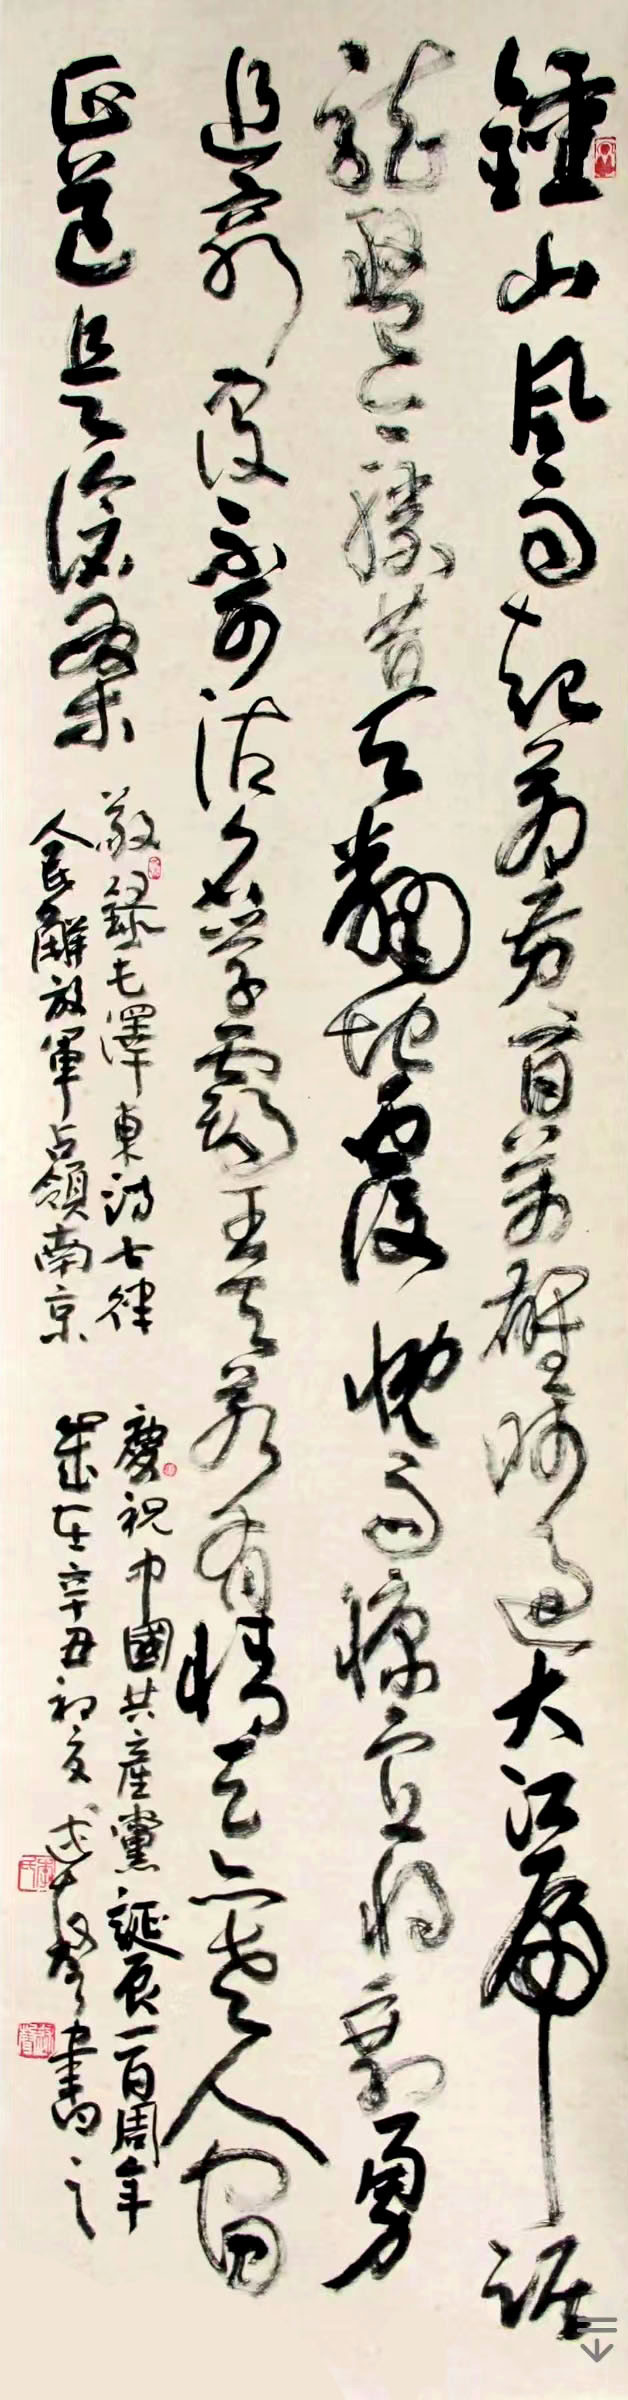 鍾山風雨起蒼黄百萬雄師過大江虎踞
龍盤今勝昔天翻地覆慨而慷宜将剩勇
追窮寇不可沽名學霸王天若有情天亦老人间
正道是滄桑
敬録毛澤東诗七律
人民解放軍占領南京
慶祝中國共產黨誕辰一百周年
歲在辛丑初夏書之